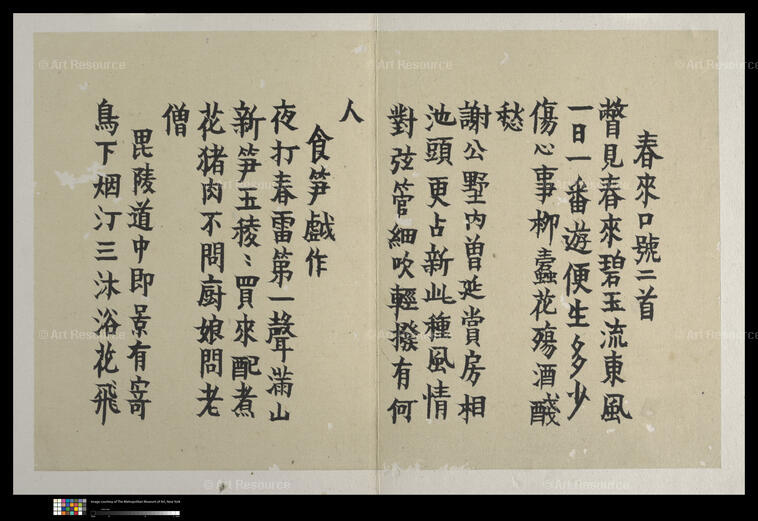 春來口號二首
瞥見春來碧玉流東風
一日一番遊便生多少
傷心事柳蠹花殤酒醆
愁
謝公墅內曾延賞房相
池頭更占新此種風情
對弦管細吹輕撥有何
人
食笋戲作
夜打春雷第一聲滿山
新笋玉稜〻買來配煮
花猪肉不問廚娘問老
僧
毘陵道中即景有寄
鳥下烟汀三沐浴花飛
© Art Resource
© Art Resource
© Art Resource
© Art Resource
© Art Resource
© Art Resource
© Art Resource
© Art Resource
© Art Resource
© Art Resource
© Art Resource
Image courtesy of The Metropolitan Museum of Art, New York